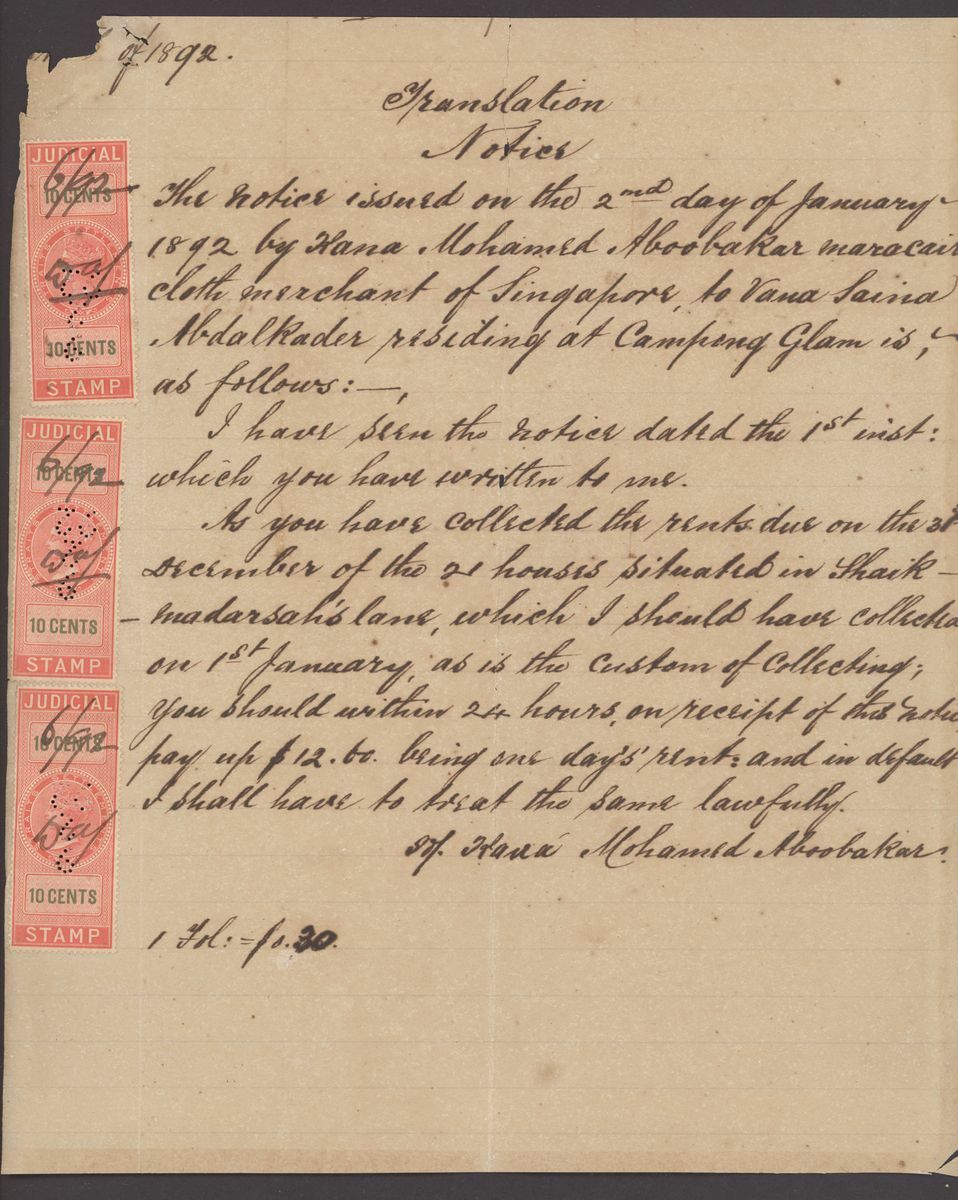 of 1892.
Translation
Notice
The notice issued on the 2nd day of January
1892 by Kana Mohamed Aboobakar maracair
cloth merchant of Singapore, to Vana Saina
Abdalkader residing at Campong Glam is,
as follows:—,
I have seen the notice dated the 1st inst:
which you have written to me.
As you have collected the rents due on the 31st
December of the 21 houses situated in Shaik-
madarsah's lane, which I should have collected
on 1st January, as is the custom of collecting;
You should within 24 hours, on receipt of this notice
pay up $12.60. being one day's rent: and in default
I shall have to treat the same lawfully.
Sd. Kana Mohamed Aboobakar.
1 Fol: = $0.30.
JUDICIAL
6/92
10 CENTS
10 CENTS
STAMP
JUDICIAL
6/92
10 CENTS
10 CENTS
STAMP
JUDICIAL
6/92
10 CENTS
10 CENTS
STAMP